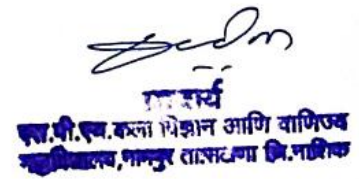 प्राचार्य
एस.पी.एच.कला विज्ञान आणि वाणिज्य
महाविद्यालय,नामपुर ता.सटाणा जि.नाशिक